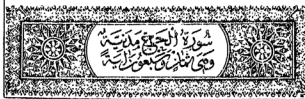 سورة الحج مدنية
وهي ثمان وسبعون آية